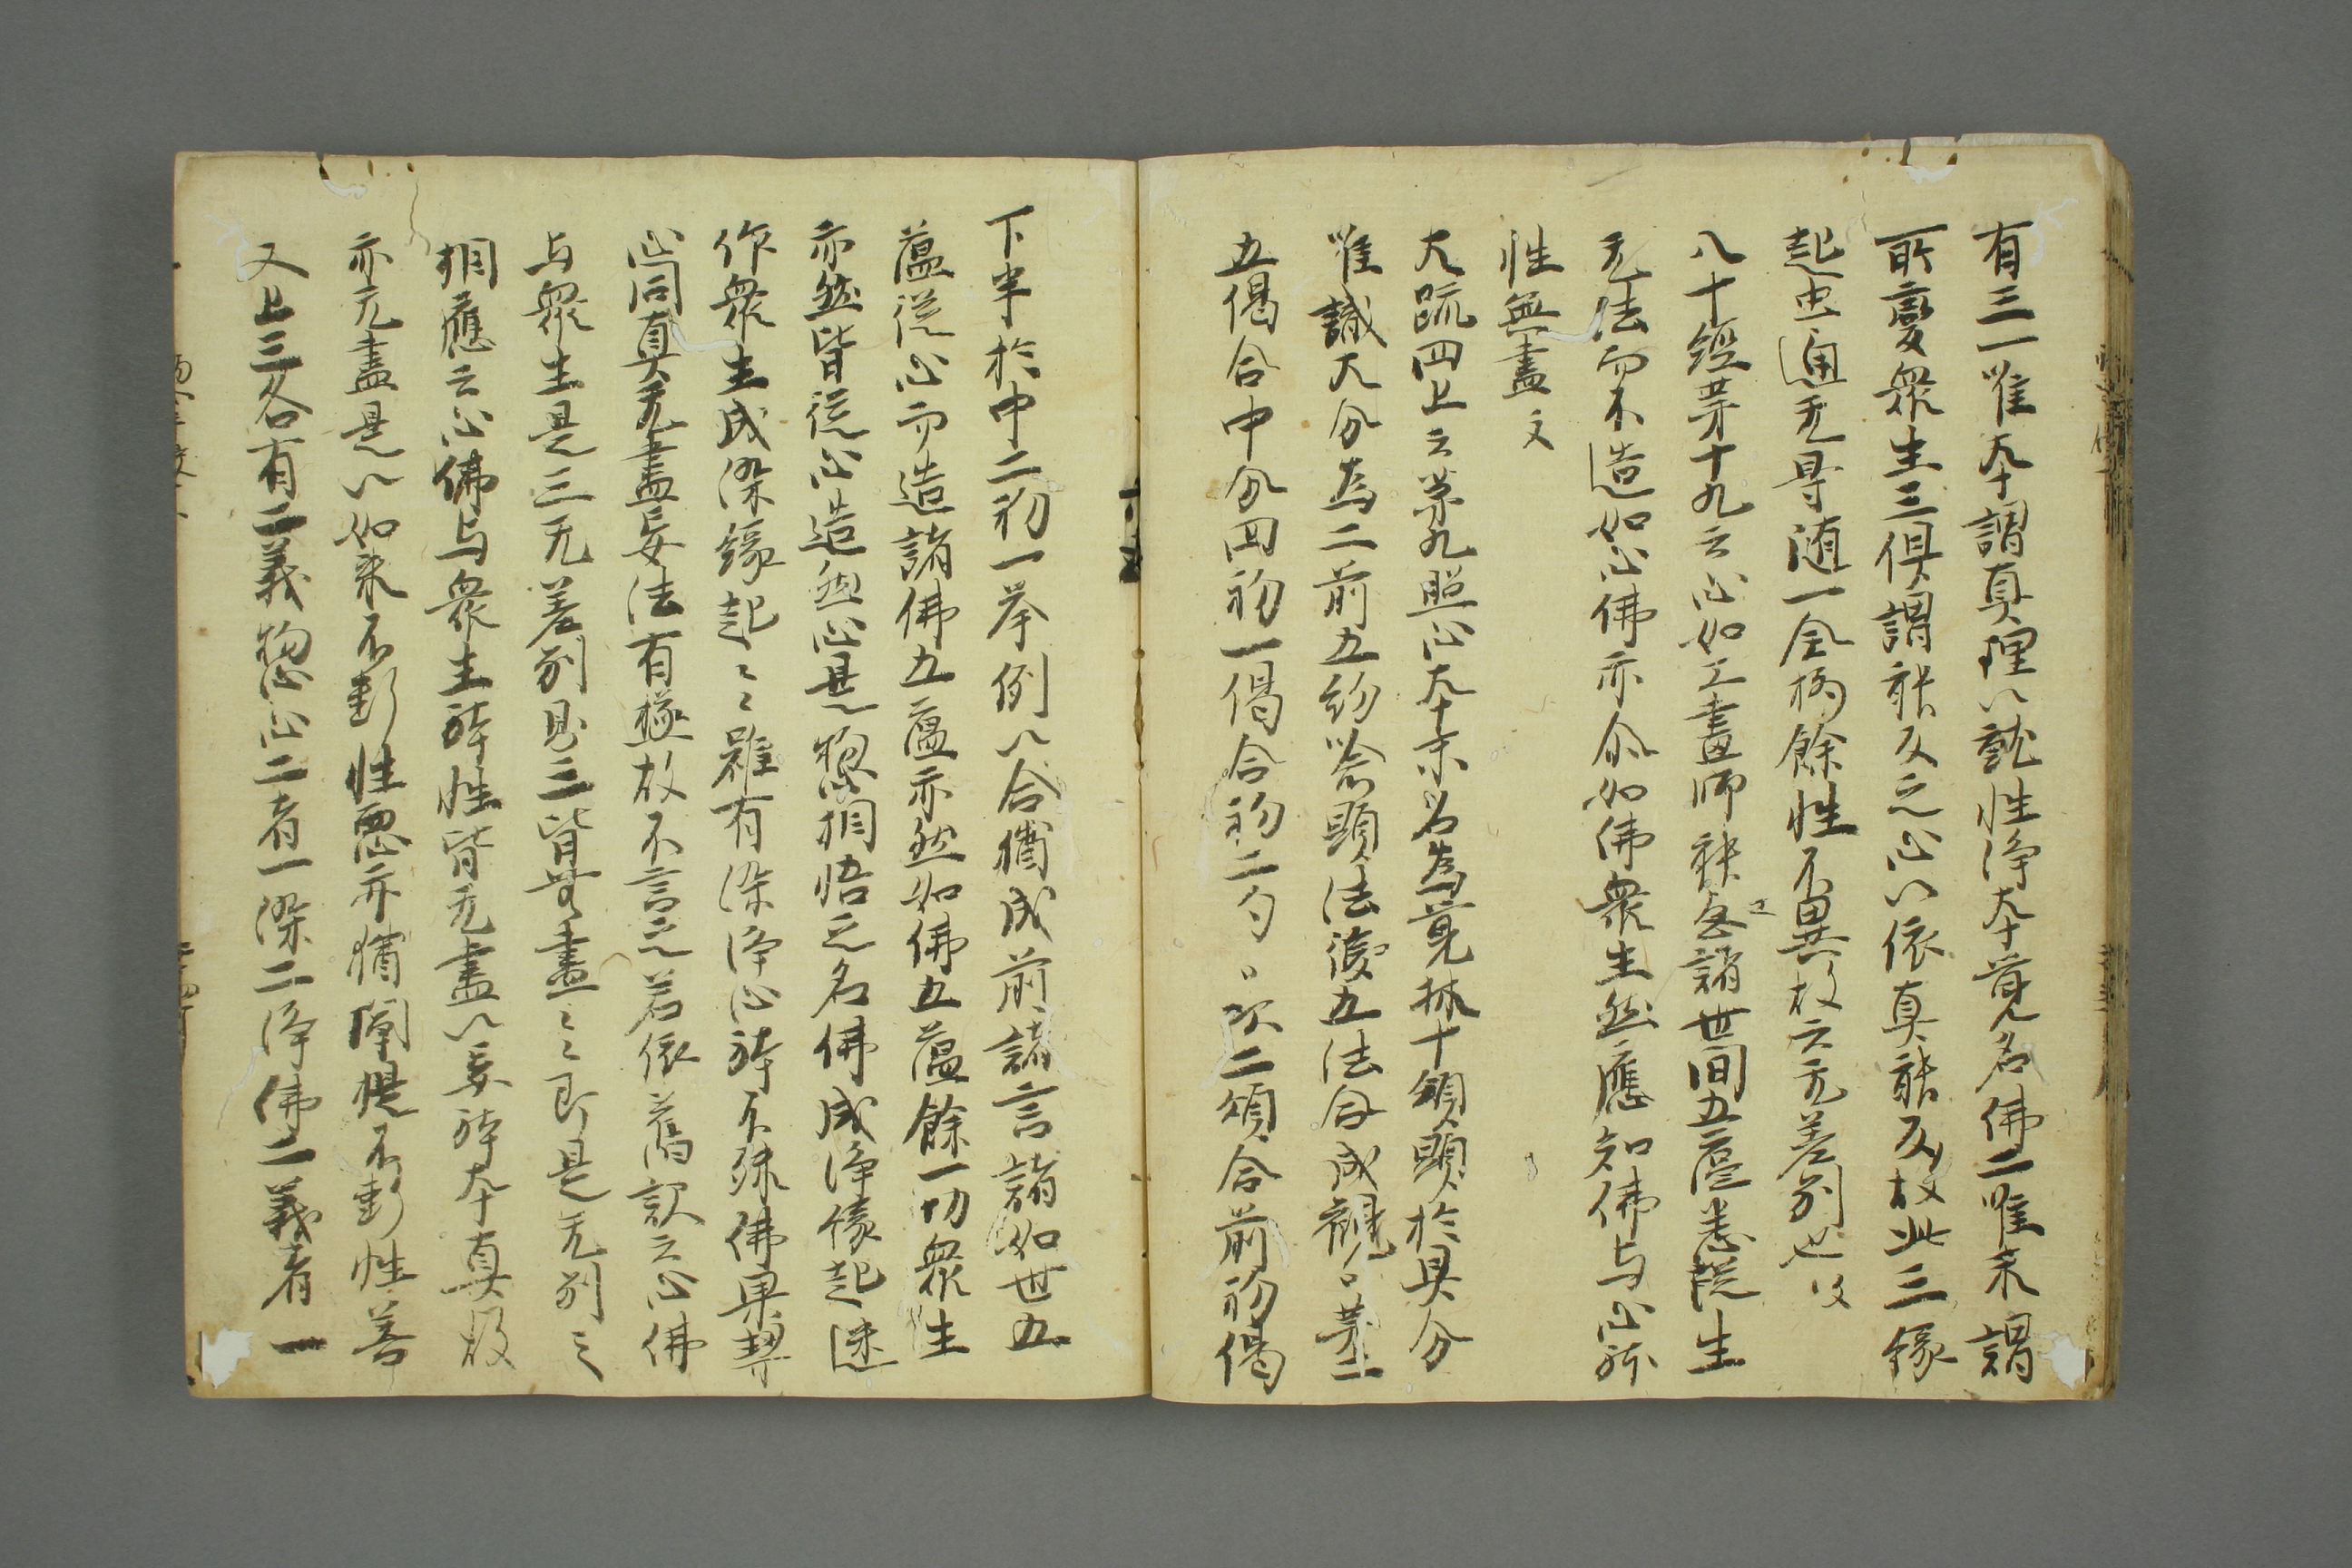 有三一唯本謂真理以就性浄本覚名佛二唯末謂
所變衆生三俱謂能反之心以依真能反故此三縁
起虫通无㝵随一全摂餘性不異故云无差別也文
八十經苐十九云心如工畫師能畫諸世間五蘊悉従生
无法而不造如心佛亦尒如佛衆生然應知佛与心躰
性無盡文
大䟽四上云苐九照心本末名為覚林十頌顕於具分
唯識大分為二前五約喩顕法後五法合成観〻苐二
五偈合中分四初一偈合初二句〻次二頌合前初偈
下半於中二初一举例以合猶成前諸言諸如世五
蘊従心而造諸佛五蘊亦然如佛五蘊餘一切衆生
亦然皆従心造然心是惣相悟之名佛成浄縁起迷
作衆生成染縁起〻〻雖有染浄心躰不殊佛果契
心同真无盡妄法有極故不言之若依舊訳云心佛
与衆生是三无差別則三皆無盡〻〻即是无別之
相應云心佛与衆生躰性皆无盡以妄躰本真故
亦无盡是以如来不断性悪亦猶闡提不断性善
又上三各有二義惣心二者一染二浄佛二義者一